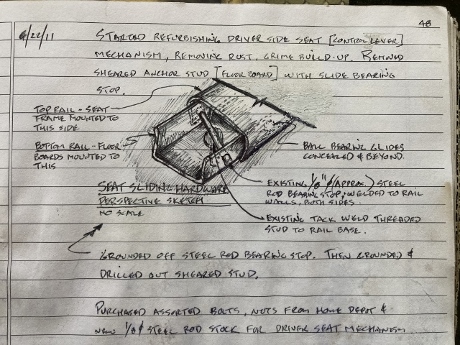 48
6/22/11
STARTED REFURBISHING DRIVER SIDE SEAT [CONTROL LEVER]
MECHANISM, REMOVING RUST, GRIME BUILD-UP. REMOVED
SHEARED ANCHOR STUD [FLOOR BOARD] WITH SLIDE BEARING
STOP.
TOP RAIL - SEAT
FRAME MOUNTED TO
THIS SIDE.
BOTTOM RAIL - FLOOR
BOARDS MOUNTED TO
THIS
BALL BEARING GLIDES
CONCEALED & BEYOND.
SEAT SLIDING HARDWARE
PERSPECTIVE SKETCH
NO SCALE
EXISTING 1/8"ϕ (APPROX) STEEL
ROD BEARING STOP, WELDED TO RAIL
WALLS, BOTH SIDES.
EXISTING TACK WELD THREADED
STUD TO RAIL BASE.
GROUNDED OFF STEEL ROD BEARING STOP. THEN GROUNDED &
DRILLED OUT SHEARED STUD.
PURCHASED ASSORTED BOLTS, NUTS FROM HOME DEPOT &
NEW 1/8ϕ STEEL ROD STOCK FOR DRIVER SEAT MECHANISM.